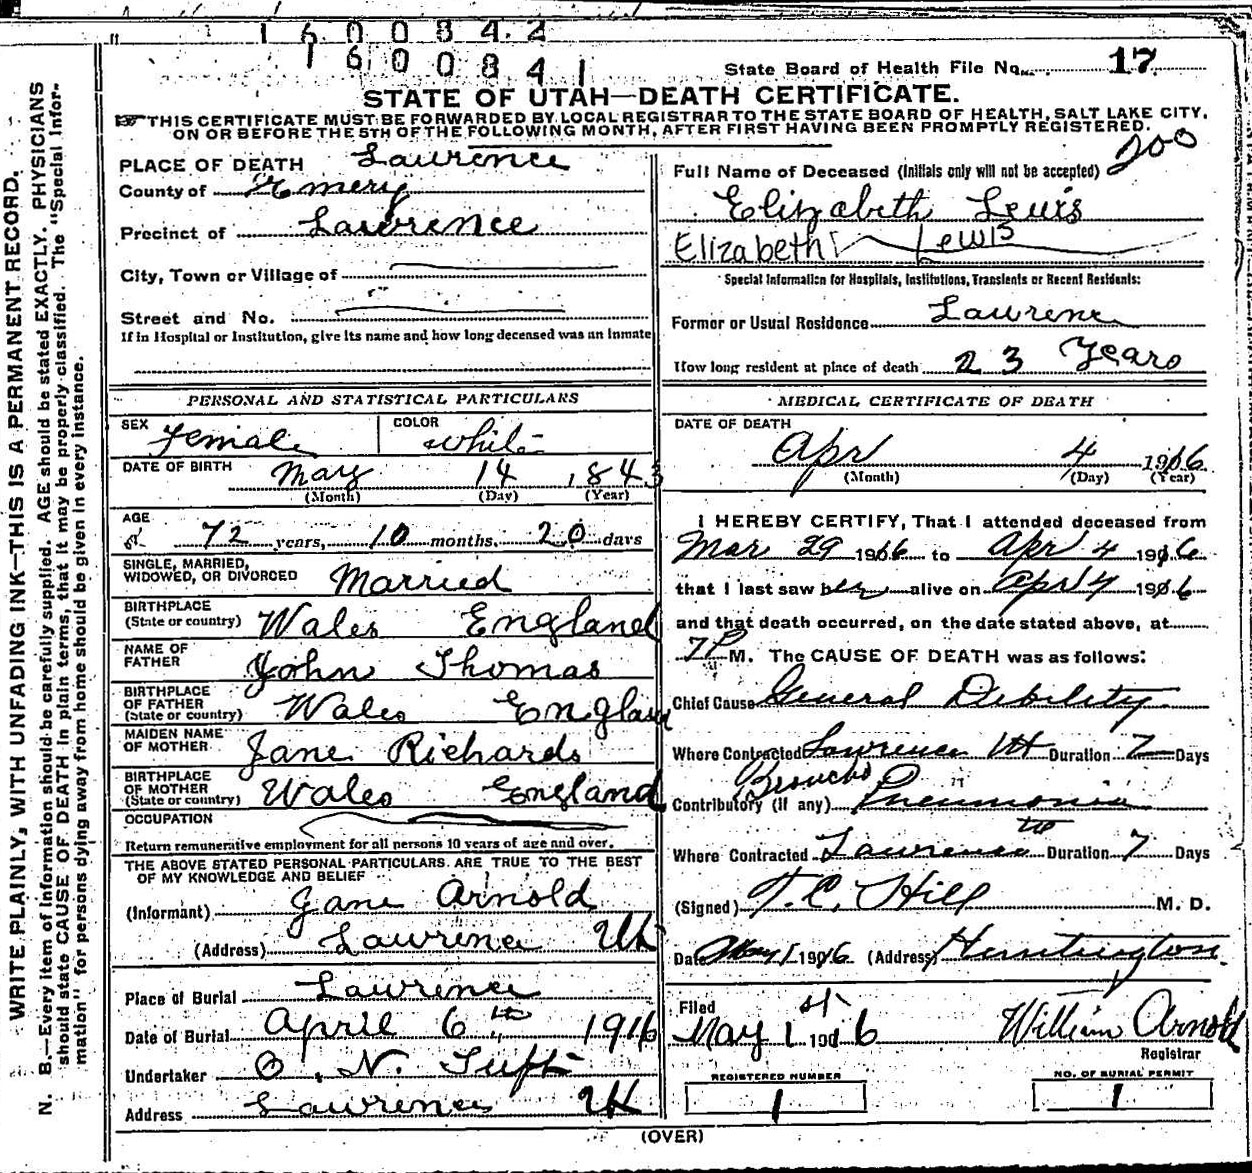 1600842
1600841
State Board of Health File No. 17
STATE OF UTAH—DEATH CERTIFICATE.
THIS CERTIFICATE MUST BE FORWARDED BY LOCAL REGISTRAR TO THE STATE BOARD OF HEALTH, SALT LAKE CITY,
ON OR BEFORE THE 5TH OF THE FOLLOWING MONTH, AFTER FIRST HAVING BEEN PROMPTLY REGISTERED.
WRITE PLAINLY, WITH UNFADING INK—THIS IS A PERMANENT RECORD.
N. B.—Every item of information should be carefully supplied. AGE should be stated EXACTLY. PHYSICIANS
should state CAUSE OF DEATH in plain terms, that it may be properly classified. The "Special Infor-
mation" for persons dying away from home should be given in every instance.
PLACE OF DEATH Lawrence
County of Emery
Precinct of Lawrence
City, Town or Village of
Street and No.
If in Hospital or Institution, give its name and how long deceased was an inmate
PERSONAL AND STATISTICAL PARTICULARS
SEX Female COLOR white
DATE OF BIRTH May 14, 1843
(Month) (Day) (Year)
AGE 72 years, 10 months, 20 days
SINGLE, MARRIED,
WIDOWED, OR DIVORCED Married
BIRTHPLACE
(State or country) Wales England
NAME OF
FATHER John Thomas
BIRTHPLACE
OF FATHER
(State or country) Wales England
MAIDEN NAME
OF MOTHER Jane Richards
BIRTHPLACE
OF MOTHER
(State or country) Wales England
OCCUPATION
Return remunerative employment for all persons 10 years of age and over.
THE ABOVE STATED PERSONAL PARTICULARS ARE TRUE TO THE BEST
OF MY KNOWLEDGE AND BELIEF
(Informant) Jane Arnold
(Address) Lawrence Ut
Place of Burial Lawrence
Date of Burial April 6th 1916
Undertaker O. N. Tuft
Address Lawrence Ut
200
Full Name of Deceased (Initials only will not be accepted)
Elizabeth Lewis
Elizabeth Lewis
Special Information for Hospitals, Institutions, Transients or Recent Residents:
Former or Usual Residence Lawrence
How long resident at place of death 23 Years
MEDICAL CERTIFICATE OF DEATH
DATE OF DEATH
Apr 4 1916
(Month) (Day) (Year)
I HEREBY CERTIFY, That I attended deceased from
Mar 29 1916 to Apr 4 1916
that I last saw her alive on Apr 4 1916
and that death occurred, on the date stated above, at
7 P M. The CAUSE OF DEATH was as follows:
Chief Cause General Debility
Where Contracted Lawrence Ut Duration 7 Days
Broncho
Contributory (if any) Pneumonia
Where Contracted Lawrence Ut Duration 7 Days
(Signed) T. C. Hill M. D.
Date May 1 1916 (Address) Huntington.
Filed
May 1st 1916 William Arnold
Registrar
REGISTERED NUMBER
1
NO. OF BURIAL PERMIT
1
(OVER)